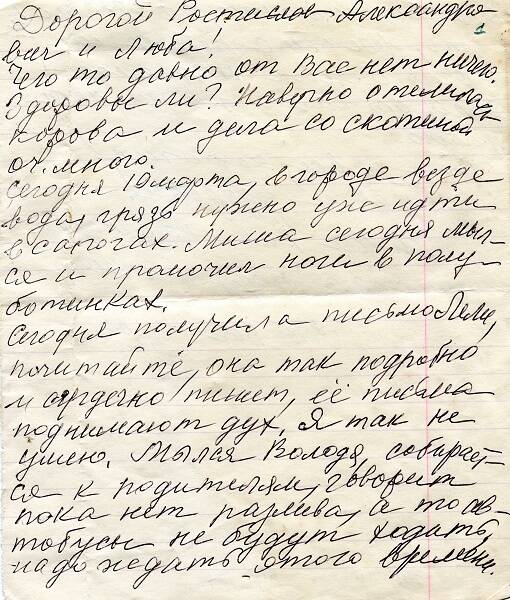 Дорогой Ростислав Александро
вич и Люба!
1
Что то давно от Вас нет ничего.
Здоровы ли? Наверно отелилась
корова и дела со скотиной
оч. много.
Сегодня 10 марта, в городе везде
вода, грязь нужно уже идти
в сапогах. Миша сегодня мыл-
ся и промочил ноги в полу
ботинках.
Сегодня получила письмо Лели,
почитайте, она так подробно
и сердечно пишет, её письма
поднимают дух. Я так не
умею. Мылся Володя, собирает-
ся к родителям, говорит
пока нет разлива, а то ав-
тобусы не будут ходить,
надо ждать этого времени.